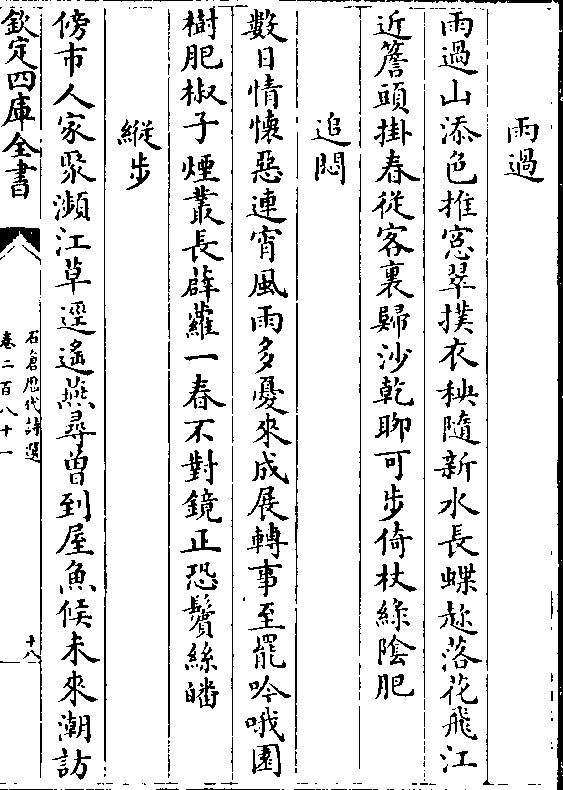 雨過
雨過山添色推窓翠撲衣秧隨新水長蝶趂落花飛江
近簷頭掛春從客裏歸沙乾聊可步倚杖綠陰肥
追悶
數日情懷惡連宵風雨多憂來成展轉事至罷吟哦園
樹肥椒子煙叢長薜蘿一春不對鏡正恐鬢絲皤
縱步
傍市人家聚瀕江草逕遙燕尋曽到屋魚候未來潮訪
欽定四庫全書
石倉歷代詩選
卷二百八十一
十八